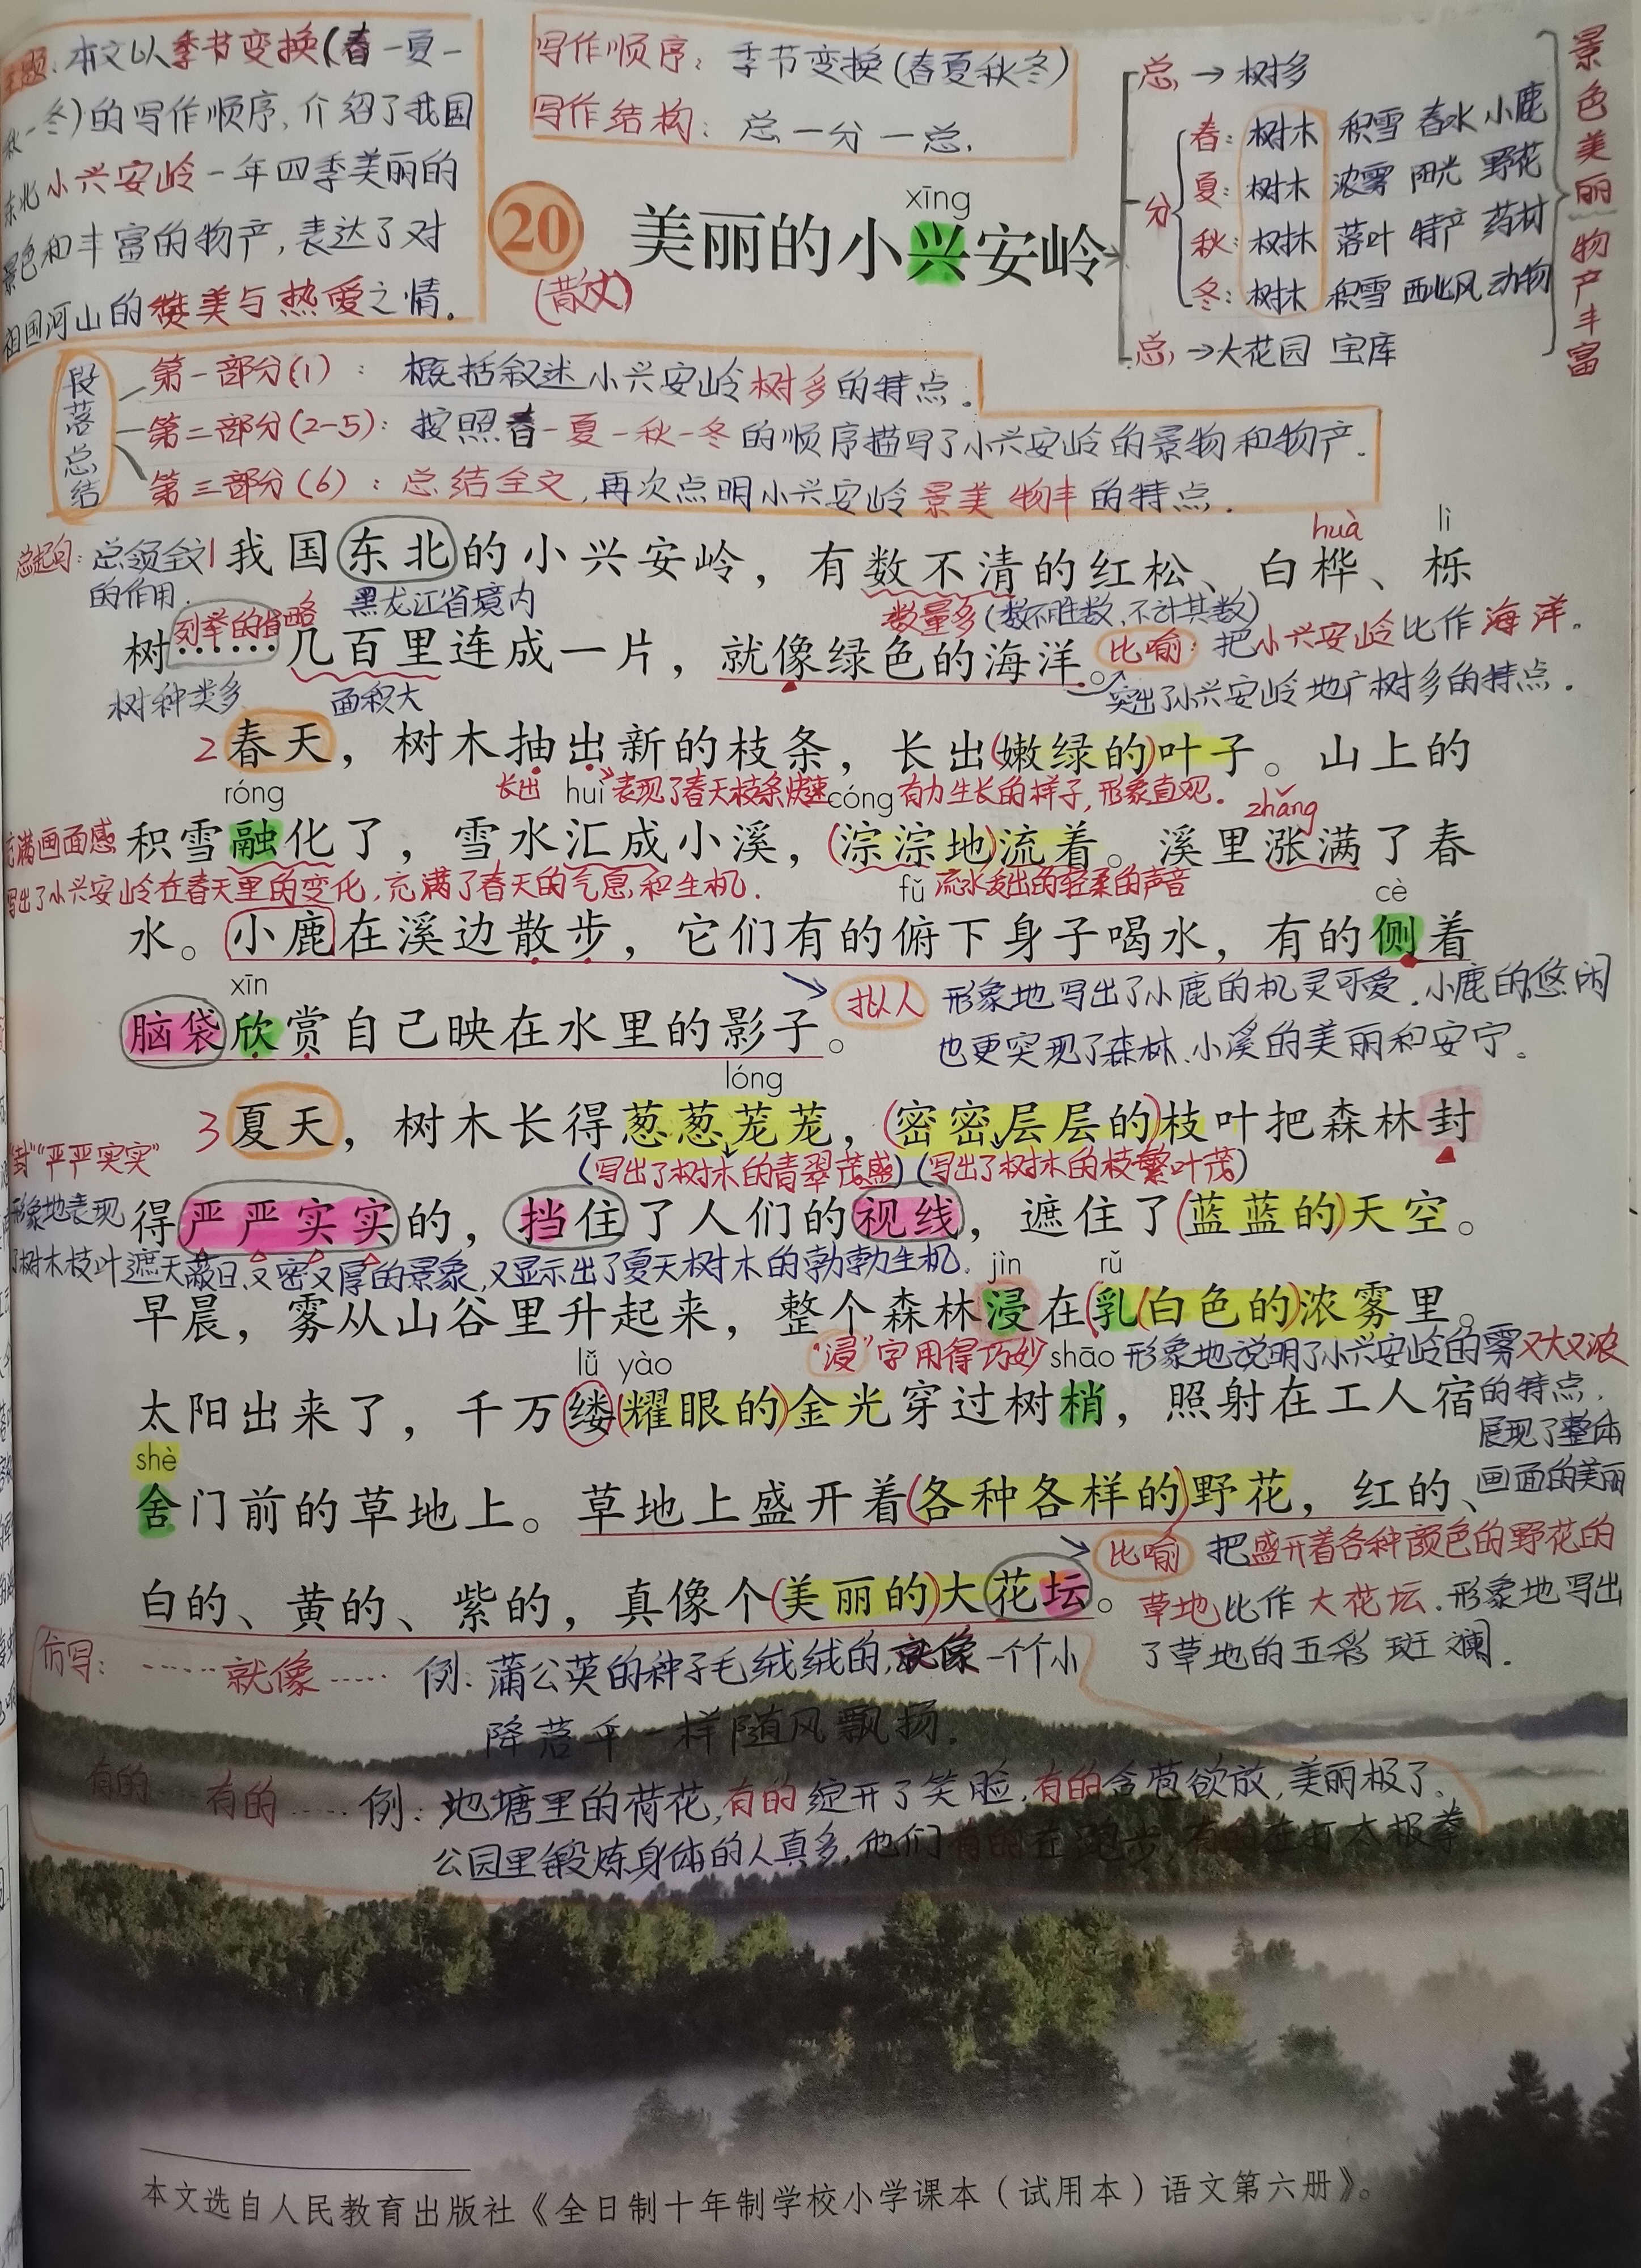 主题:本文以季节变换(春-夏-
秋-冬)的写作顺序,介绍了我国
东北小兴安岭一年四季美丽的
景色和丰富的物产,表达了对
祖国河山的赞美与热爱之情。
写作顺序:季节变换(春夏秋冬)
写作结构:总一分一总.
xīng
20 美丽的小兴安岭
(散文)
总→树多
分
春:树木 积雪 春水 小鹿
夏:树木 浓雾 阳光 野花
秋:树林 落叶 特产 药材
冬:树木 积雪 西北风 动物
总→大花园 宝库
景色美丽物产丰富
段落总结
第一部分(1):概括叙述小兴安岭树多的特点.
第二部分(2-5):按照春-夏-秋-冬的顺序描写了小兴安岭的景物和物产.
第三部分(6):总结全文,再次点明小兴安岭景美物丰的特点.
huà lì
总起句:总领全文
的作用.
1我国东北的小兴安岭,有数不清的红松、白桦、栎
列举的省略 黑龙江省境内 数量多(数不胜数,不计其数)
树……几百里连成一片,就像绿色的海洋。
比喻:把小兴安岭比作海洋.
突出了小兴安岭地广树多的特点.
树种类多 面积大
2春天,树木抽出新的枝条,长出(嫩绿的)叶子。山上的
长出 表现了春天枝条快速有力生长的样子,形象直观.
róng huì cóng zhǎng
充满画面感
积雪融化了,雪水汇成小溪,(淙淙地)流着。溪里涨满了春
写出了小兴安岭在春天里的变化,充满了春天的气息和生机. 流水发出的轻柔的声音
fǔ cè
水。小鹿在溪边散步,它们有的俯下身子喝水,有的侧着
xīn
脑袋欣赏自己映在水里的影子。
拟人 形象地写出了小鹿的机灵可爱.小鹿的悠闲
也更突现了森林、小溪的美丽和安宁。
lóng
3夏天,树木长得葱葱茏茏,(密密层层的)枝叶把森林封
(写出了树木的青翠茂盛)(写出了树木的枝繁叶茂)
得严严实实的,挡住了人们的视线,遮住了(蓝蓝的)天空。
"封""严严实实"
形象地表现
了树木枝叶遮天蔽日,又密又厚的景象,又显示出了夏天树木的勃勃生机.
jìn rǔ
早晨,雾从山谷里升起来,整个森林浸在(乳(白色的)浓雾里。
"浸"字用得巧妙 形象地说明了小兴安岭的雾又大又浓
的特点,
展现了整体
画面的美丽
lǚ yào shāo
太阳出来了,千万缕(耀眼的)金光穿过树梢,照射在工人宿
shè
舍门前的草地上。草地上盛开着(各种各样的)野花,红的、
白的、黄的、紫的,真像个(美丽的)大花坛。
比喻 把盛开着各种颜色的野花的
草地比作大花坛.形象地写出
了草地的五彩斑斓.
仿写:……就像…… 例:蒲公英的种子毛绒绒的,就像一个个小
降落伞一样随风飘扬.
有的……有的…… 例:池塘里的荷花,有的绽开了笑脸,有的含苞欲放,美丽极了。
公园里锻炼身体的人真多,他们有的在跑步,有的在打太极拳.
本文选自人民教育出版社《全日制十年制学校小学课本(试用本)语文第六册》。